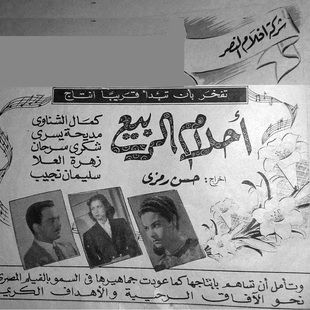 شركة افلام النصر
تفخر بأن تبدأ قريبًا انتاج
أحلام الربيع
اخراج: حسن رمزى
كمال الشناوى
مديحة يسرى
شكرى سرحان
زهرة العلا
سليمان نجيب
وتأمل أن تساهم بإنتاجها كما عودت جماهيرها في السمو بالفيلم المصرى
نحو الآفاق الرحيبة والأهداف الكريمة